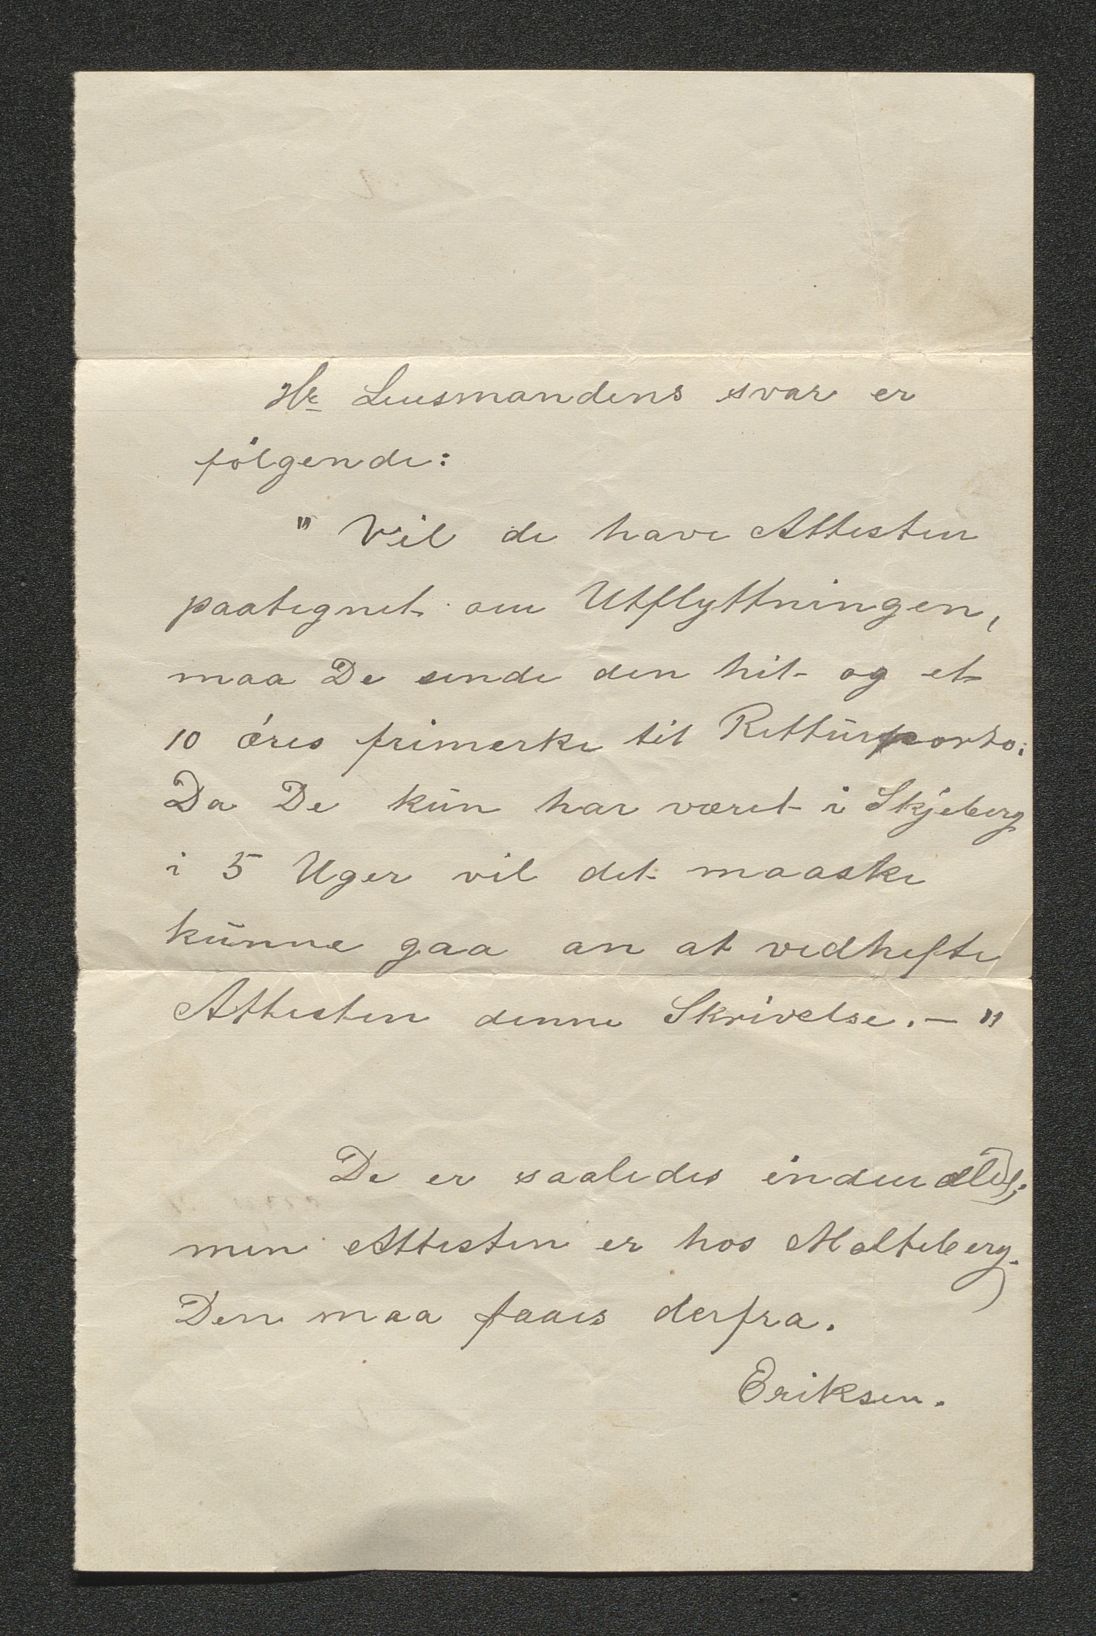 Hr Lensmandens svar er
følgende:
" Vil de have Attesten
paategnet om Utflyttningen,
maa De sende den hit og et
10 øres frimerke til Retturporto.
Da De kun har været i Skjeberg
i 5 Uger vil det maaske
kunne gaa an at vedhefte
Attesten denne Skrivelse. — "
De er saaledes
men Attesten er hos Malteberg.
Den maa faaes derfra.
Eriksen.